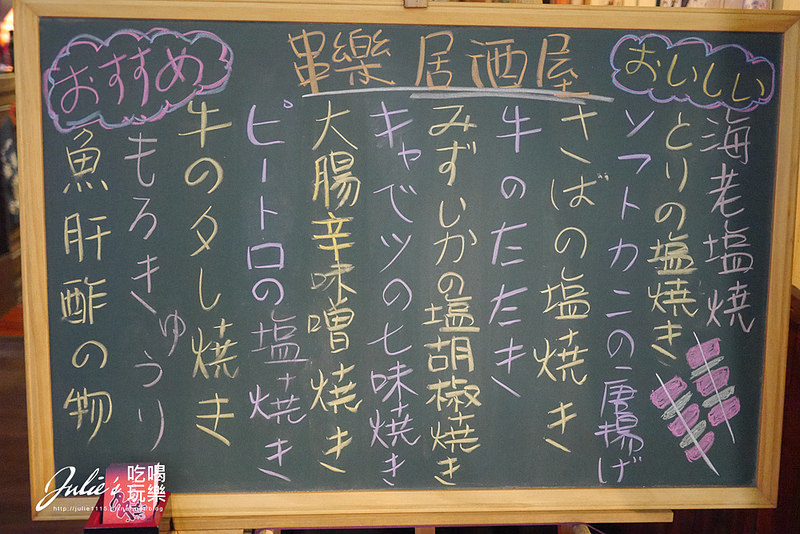 おすすめ
串樂 居酒屋
おいしい
海老塩焼
とりの塩焼き
ソフトカニの唐揚げ
さばの塩焼き
牛のたたき
みずいかの塩胡椒焼き
キャベツの七味焼き
大腸辛味噌焼き
ピートロの塩焼き
牛のタレ焼き
もろきゅうり
魚肝酢の物
Julie's
吃喝
玩樂